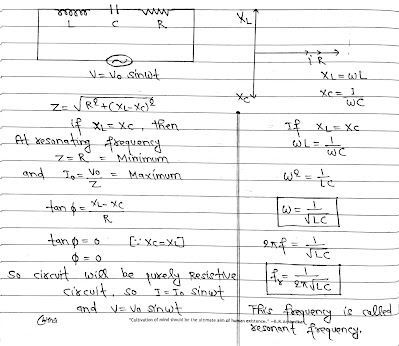 L C R
V = V₀ sinωt
Z = √R²+(XL-XC)²
if XL = XC, then
At resonating frequency
Z = R = Minimum
and I₀ = V₀/Z = Maximum
tan ϕ = XL-XC/R
tan ϕ = 0 [∵ XC=XL]
ϕ = 0
So circuit will be purely Resistive
Circuit, so I = I₀ sinωt
and V = V₀ sinωt
XL
i R
XC
XL = ωL
XC = 1/ωC
If XL = XC
ωL = 1/ωC
ω² = 1/LC
ω = 1/√LC
2πf = 1/√LC
fr = 1/2π√LC
This frequency is called
resonant frequency.
"Cultivation of mind should be the ultimate aim of human existence." –B.R.